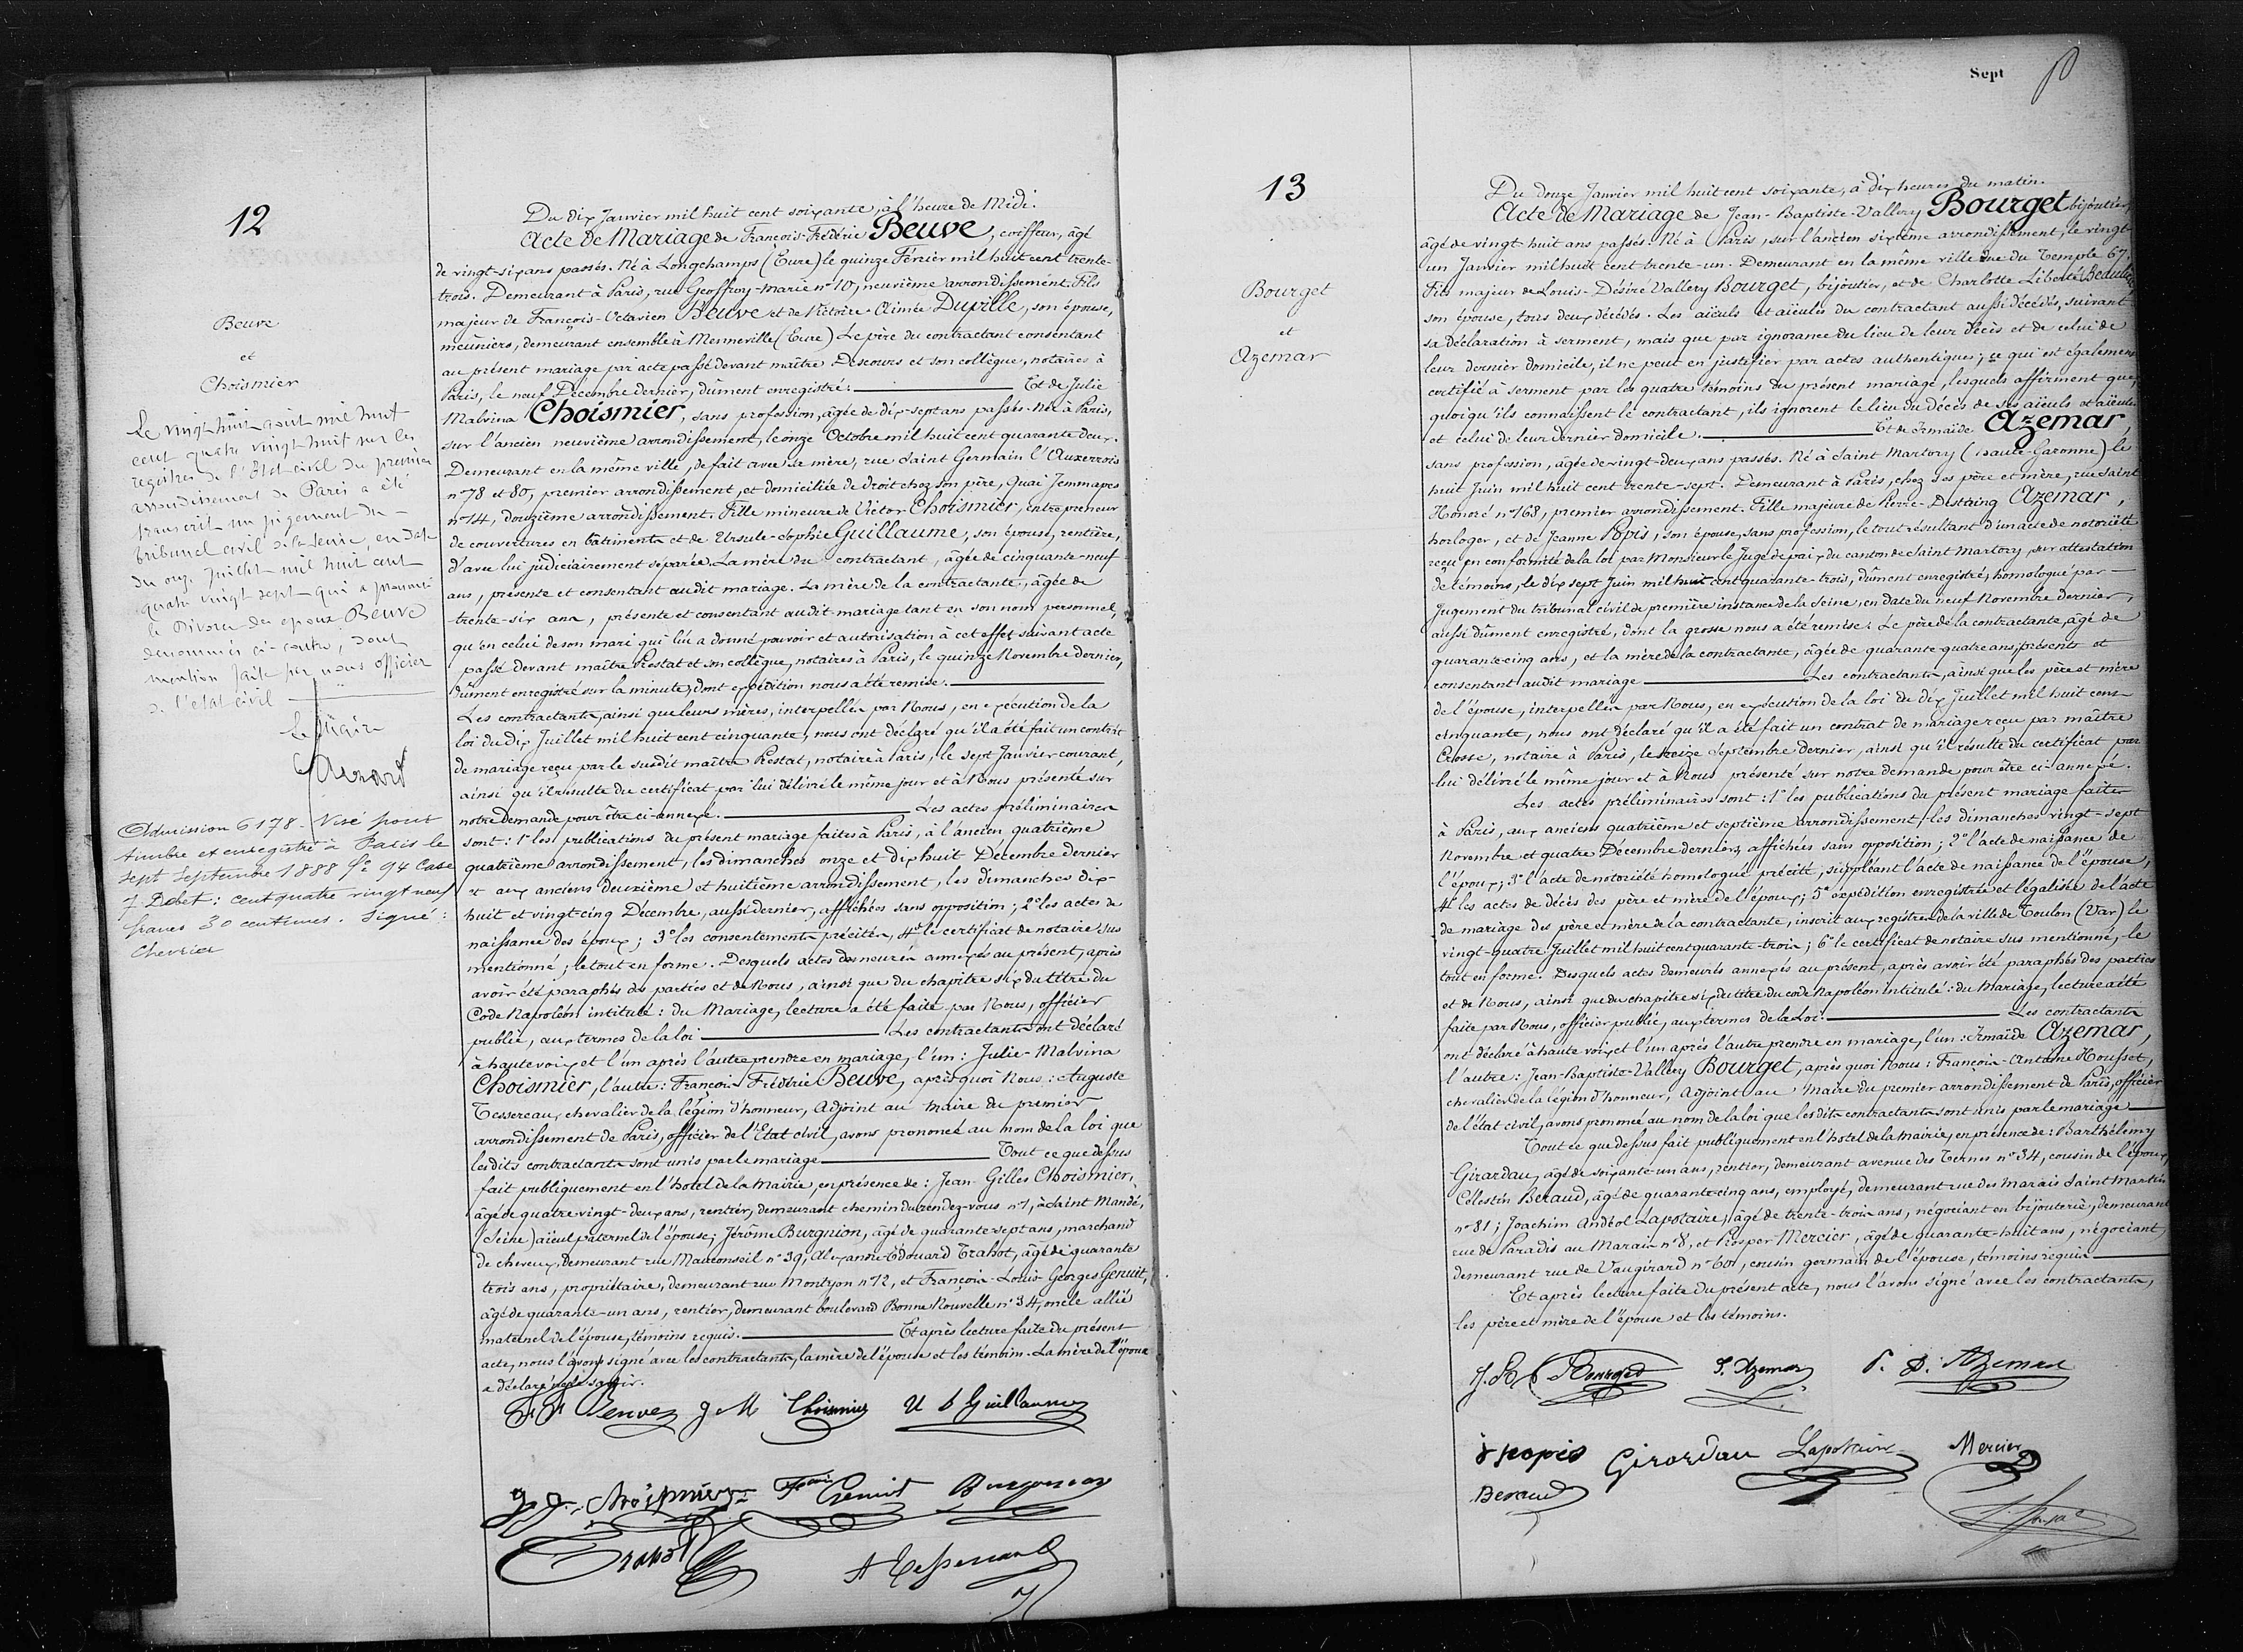 12
Beuve
et
Choismier
Le vingt huit août mil huit
cent quatre vingt huit sur les
registres de l'Etat civil du premier
arrondissement de Paris a été
transcrit un jugement du
tribunal civil de la Seine, en date
du onze Juillet mil huit cent
quatre vingt sept qui a prononcé
le Divorce des époux Beuve
dénommés ci-contre, dont
mention faite par nous officier
de l'état civil
Le Maire
Admission 6178. Visé pour
timbre et enregistré à Paris le
sept Septembre 1888 fo 94 Case
7 Debet : cent quatre vingt neuf
francs 30 centimes. Signé :
Chevrier
Du dix Janvier mil huit cent soixante, à l'heure de Midi.
Acte de Mariage de François-Frédéric Beuve, coiffeur, âgé
de vingt-six ans passés. Né à Longchamps (Eure) le quinze Février mil huit cent trente-
trois. Demeurant à Paris, rue Geoffroy-Marie n° 10, neuvième arrondissement. Fils
majeur de François-Octavien Beuve et de Victoire Aimée Duville, son épouse,
meuniers, demeurant ensemble à Menneville (Eure) Le père du contractant consentant
au présent mariage par acte passé devant maître Descours et son collègue, notaires à
Paris, le neuf Décembre dernier, dûment enregistré : Et de Julie
Malvina Choismier, sans profession, âgée de dix-sept ans passés. Née à Paris,
sur l'ancien neuvième arrondissement, le onze Octobre mil huit cent quarante deux.
Demeurant en la même ville, de fait avec sa mère, rue Saint Germain l'Auxerrois
n° 78 et 80, premier arrondissement, et domiciliée de droit chez son père, Quai Jemmapes
n° 14, douzième arrondissement. Fille mineure de Victor Choismier, entrepreneur
de couvertures en bâtiments et de Ursule-Sophie Guillaume, son épouse, rentière,
d'avec lui judiciairement séparée. La mère du contractant, âgée de cinquante-neuf
ans, présente et consentant audit mariage. La mère de la contractante, âgée de
trente-six ans, présente et consentant audit mariage tant en son nom personnel,
qu'en celui de son mari qui lui a donné pouvoir et autorisation à cet effet suivant acte
passé devant maître Prestat et son collègue, notaires à Paris, le quinze Novembre dernier,
dûment enregistré sur la minute, dont expédition nous a été remise.
Les contractants, ainsi que leurs mères, interpellés par Nous, en exécution de la
loi du dix Juillet mil huit cent cinquante, nous ont déclaré qu'il a été fait un contrat
de mariage reçu par le susdit maître Prestat, notaire à Paris, le sept Janvier courant,
ainsi qu'il résulte du certificat par lui délivré le même jour et à Nous présenté sur
notre demande pour être ci-annexé. Les actes préliminaires
sont : 1° les publications du présent mariage faites à Paris, à l'ancien quatrième
quatrième arrondissement, les dimanches onze et dix huit Décembre dernier
et aux anciens deuxième et huitième arrondissement, les dimanches dix-
huit et vingt-cinq Décembre, aussi dernier, affichées sans opposition ; 2° les actes de
naissance des époux ; 3° les consentements précités, 4° le certificat de notaire sus
mentionné ; le tout en forme. Desquels actes demeurés annexés au présent, après
avoir été paraphés des parties et de Nous, ainsi que du chapitre six du titre du
Code Napoléon intitulé : du Mariage, lecture a été faite par Nous, officier
public, aux termes de la loi Les contractants ont déclaré
à haute voix et l'un après l'autre prendre en mariage, l'un : Julie-Malvina
Choismier, l'autre : François Frédéric Beuve, après quoi Nous : Auguste
Tessereau, chevalier de la légion d'honneur, Adjoint au Maire du premier
arrondissement de Paris, officier de l'Etat civil, avons prononcé au nom de la loi que
lesdits contractants sont unis par le mariage Tout ce que dessus
fait publiquement en l'hotel de la Mairie, en présence de : Jean Gilles Choismier,
âgé de quatre vingt-deux ans, rentier, demeurant chemin du rendez-vous n° 1, à Saint Mandé,
(Seine) aïeul paternel de l'épouse ; Jérôme Burgnion, âgé de quarante sept ans, marchand
de cheveux, demeurant rue Mauconseil n° 39, Alexandre Edouard Trabot, âgé de quarante
trois ans, propriétaire, demeurant rue Montyon n° 12, et François-Louis-Georges Genuit,
âgé de quarante-un ans, rentier, demeurant boulevard Bonne Nouvelle n° 34, oncle allié
maternel de l'épouse, témoins requis. Et après lecture faite du présent
acte, nous l'avons signé avec les contractants, la mère de l'épouse et les témoins. La mère de l'époux
a déclaré ne le savoir.
F F Beuve J M Choismier U S Guillaume
J G Choismier Genuit Burgnion
Trabot A Tessereau
Sept
13
Bourget
et
Azemar
Du douze Janvier mil huit cent soixante, à dix heures du matin.
Acte de Mariage de Jean-Baptiste-Vallery Bourget bijoutier,
âgé de vingt huit ans passés. Né à Paris, sur l'ancien sixième arrondissement, le vingt-
un Janvier mil huit cent trente-un. Demeurant en la même ville Rue du Temple 67.
Fils majeur de Louis-Désiré Vallery Bourget, bijoutier, et de Charlotte Liberté Beaulieu
son épouse, tous deux décédés. Les aïeuls et aïeules du contractant aussi décédés, suivant
sa déclaration à serment, mais que par ignorance du lieu de leur décès et de celui de
leur dernier domicile, il ne peut en justifier par actes authentiques ; ce qui est également
certifié à serment par les quatre témoins du présent mariage, lesquels affirment que,
quoiqu'ils connaissent le contractant, ils ignorent le lieu du décès de ses aïeuls et aïeules
et celui de leur dernier domicile. Et de Irmaïde Azemar,
sans profession, âgée de vingt-deux ans passés. Né à Saint Martory (Haute-Garonne) le
huit Juin mil huit cent trente-sept. Demeurant à Paris, chez ses père et mère, rue Saint
Honoré n° 168, premier arrondissement. Fille majeure de Pierre-Destaing Azemar,
horloger, et de Jeanne Popis, son épouse, sans profession, le tout résultant d'un acte de notoriété
reçu en conformité de la loi par Monsieur le Juge de paix du canton de Saint Martory, sur attestation
de témoins, le dix sept Juin mil huit cent quarante-trois, dûment enregistré, homologué par
Jugement du tribunal civil de première instance de la Seine, en date du neuf Novembre dernier,
aussi dûment enregistré, dont la grosse nous a été remise. Le père de la contractante, âgé de
quarante-cinq ans, et la mère de la contractante, âgée de quarante-quatre ans, présents et
consentant audit mariage Les contractants, ainsi que les père et mère
de l'épouse, interpellés par Nous, en exécution de la loi du dix Juillet mil huit cent
cinquante, nous ont déclaré qu'il a été fait un contrat de mariage reçu par maître
Crosse, notaire à Paris, le treize Septembre dernier, ainsi qu'il résulte du certificat par
lui délivré le même jour et à Nous présenté sur notre demande pour être ci-annexé.
Les actes préliminaires sont : 1° les publications du présent mariage faites
à Paris, aux anciens quatrième et septième arrondissement, les dimanches vingt-sept
Novembre et quatre Décembre derniers, affichées sans opposition ; 2° l'acte de naissance de
l'époux ; 3° l'acte de notoriété homologué précité, suppléant l'acte de naissance de l'épouse ;
4° les actes de décès des père et mère de l'époux ; 5° expédition enregistrée et légalisée de l'acte
de mariage des père et mère de la contractante, inscrit aux registres de la ville de Toulon (Var) le
vingt-quatre Juillet mil huit cent quarante-trois ; 6° le certificat de notaire sus mentionné, le
tout en forme. Desquels actes demeurés annexés au présent, après avoir été paraphés des parties
et de Nous, ainsi que du chapitre six du titre du code Napoléon intitulé : du Mariage, lecture a été
faite par Nous, officier public, aux termes de la Loi. Les contractants
ont déclaré à haute voix et l'un après l'autre prendre en mariage, l'un : Irmaïde Azemar,
l'autre : Jean-Baptiste-Vallery Bourget, après quoi Nous : François-Antoine Housset,
chevalier de la légion d'honneur, Adjoint au Maire du premier arrondissement de Paris, officier
de l'état civil, avons prononcé au nom de la loi que lesdits contractants sont unis par le mariage
Tout ce que dessus fait publiquement en l'hotel de la Mairie, en présence de : Barthélemy
Girardau, âgé de soixante-un ans, rentier, demeurant avenue des Ternes n° 34, cousin de l'époux,
Célestin Beraud, âgé de quarante-cinq ans, employé, demeurant rue des Marais Saint Martin
n° 81 ; Joachim Andéol Lapotaire, âgé de trente-trois ans, négociant en bijouterie, demeurant
rue de Paradis au Marais n° 8, et Prosper Mercier, âgé de quarante-huit ans, négociant,
demeurant rue de Vaugirard n° 60, cousin germain de l'épouse, témoins requis
Et après lecture faite du présent acte, nous l'avons signé avec les contractants,
les père et mère de l'épouse et les témoins.
J. B. Bourget I. Azemar P. D. Azemar
J popis Girardau Lapotaire Mercier
Beraud